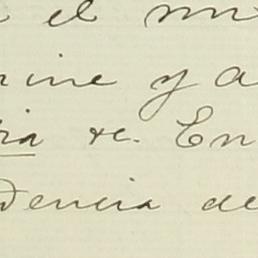 el m
rine y a
ria &c. En
dencia de